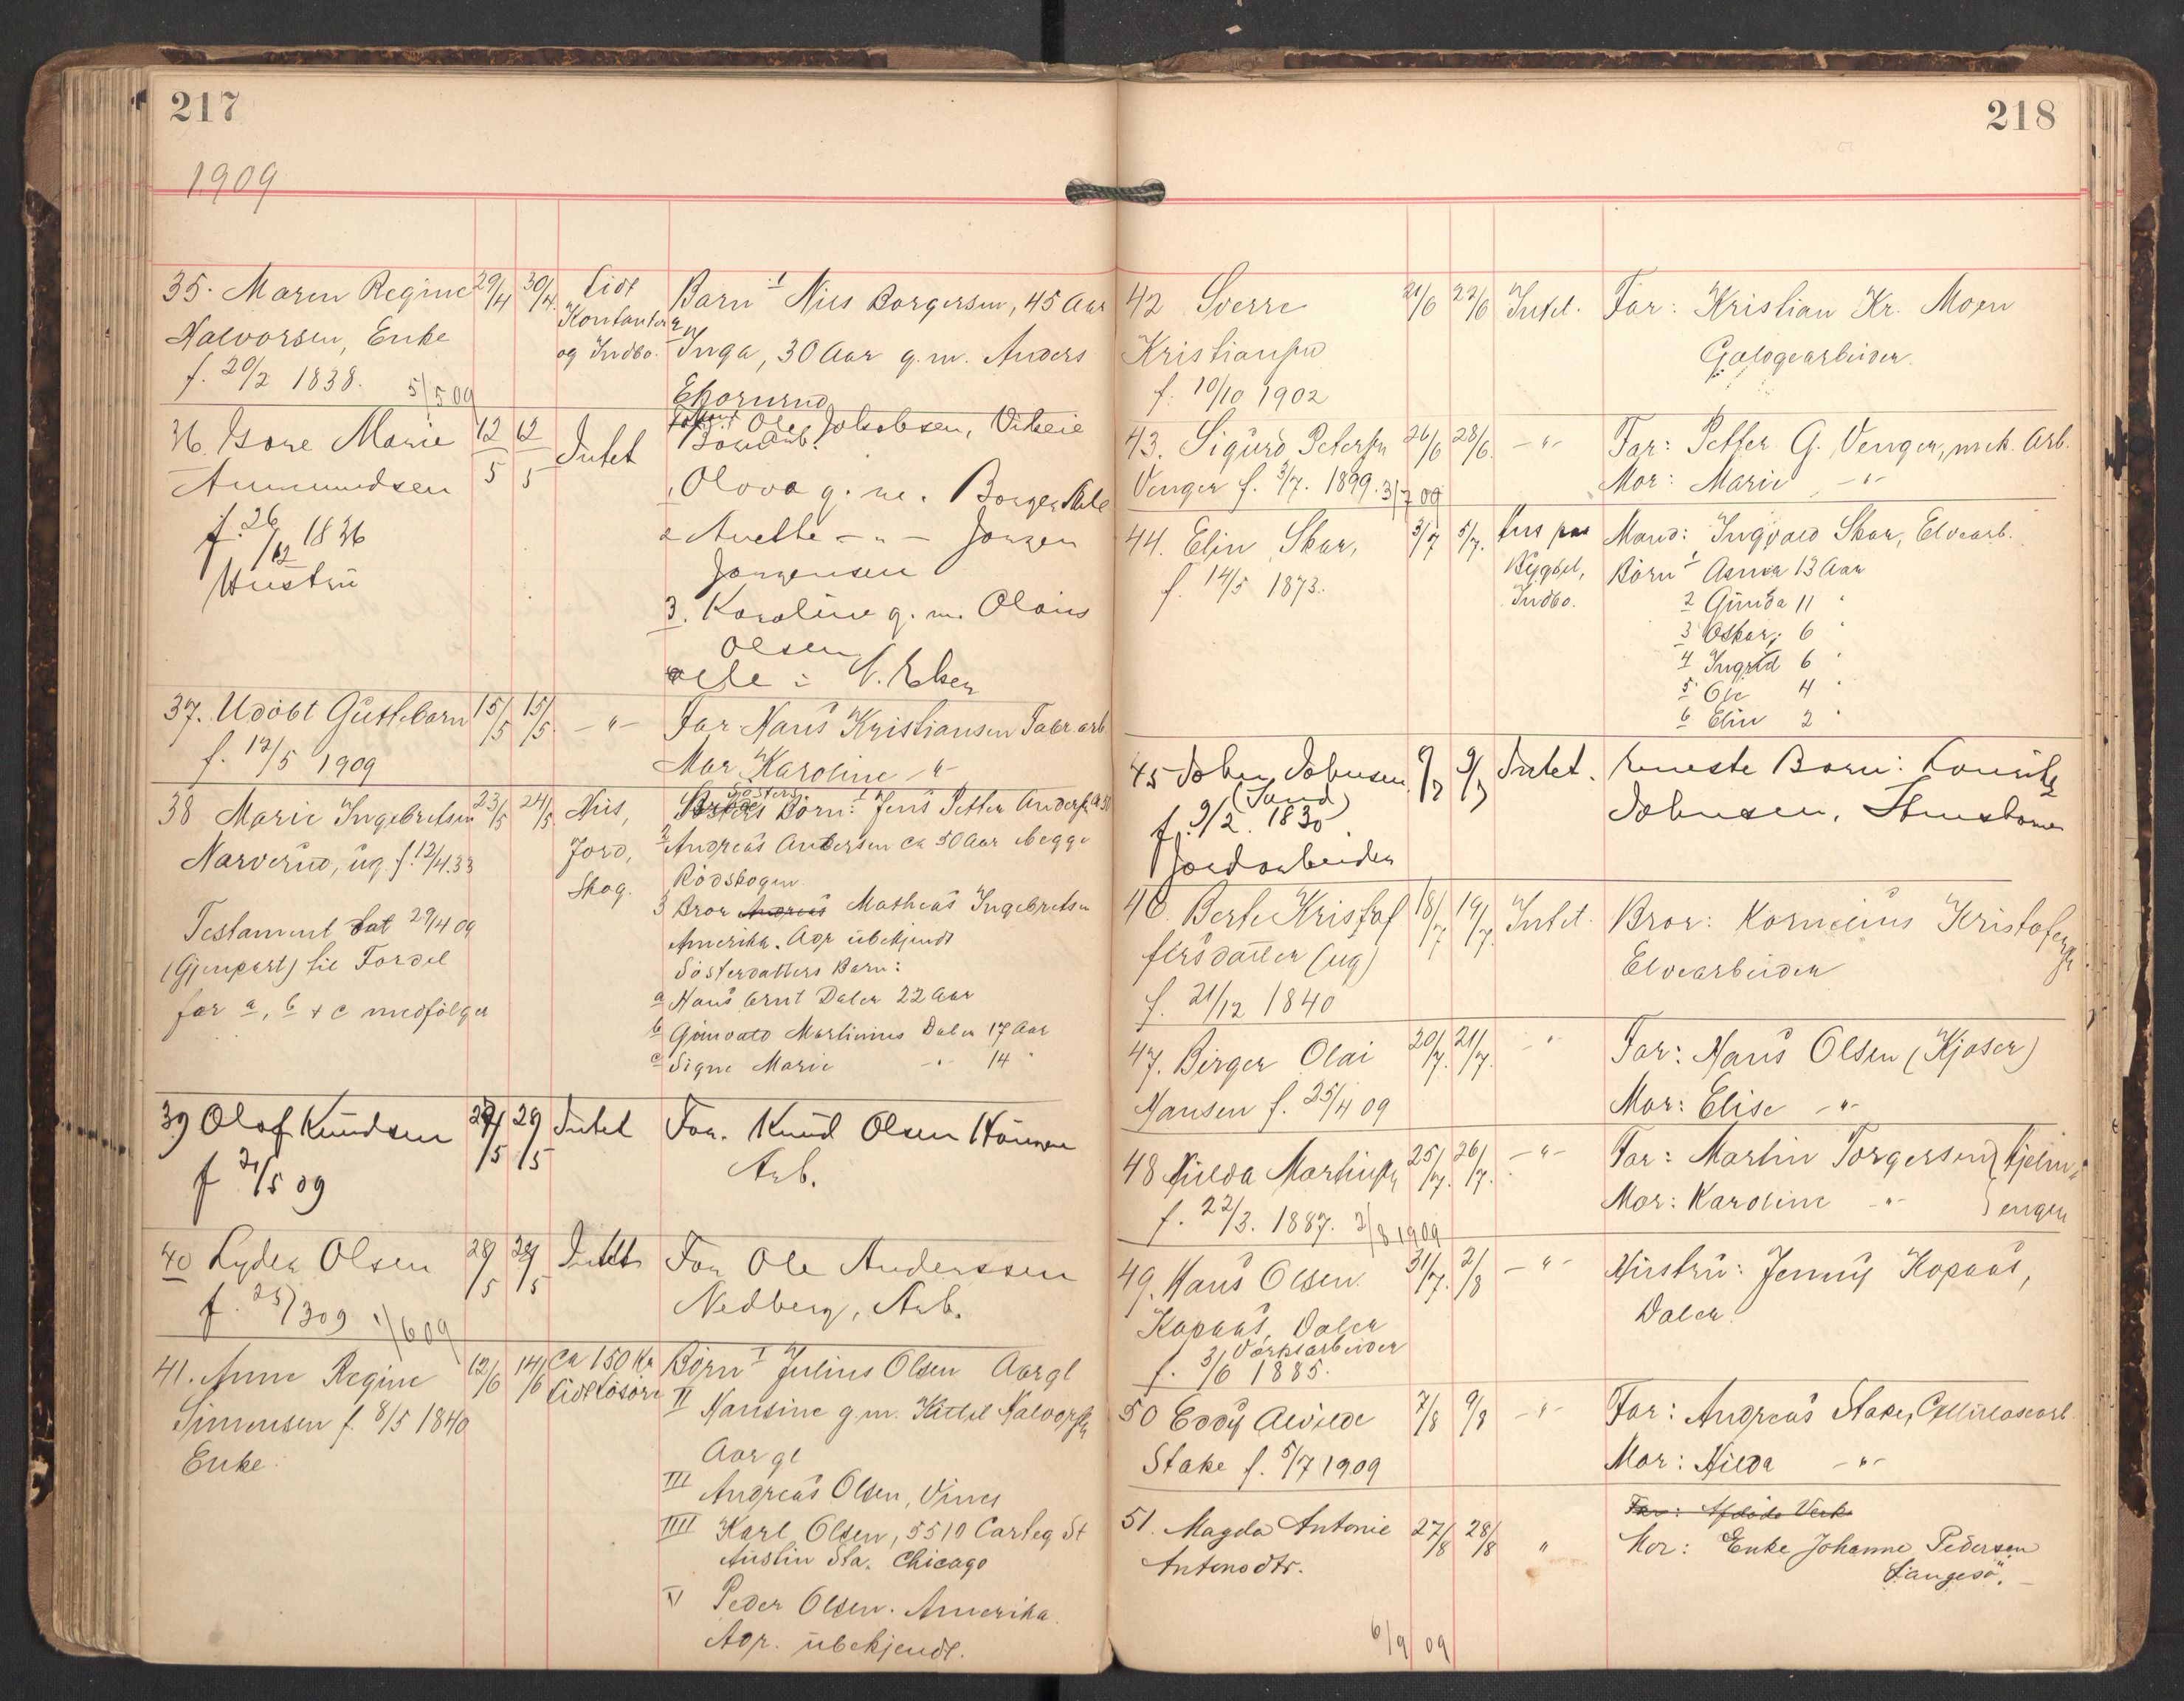 217
1909
35. Maren Regine 29/4 30/4 Lidt Børn 1 Nils Borgersen, 45 Aar
Halvorsen, Enke Kontanter 2 Inga, 30 Aar g. m. Anders
f. 20/2 1838. og Indbo.
5/5 09
36. Marie 12/5 12/5 Intet Ole Jakobsen,
Ammundsen 1 Olava g. m. Borger
f. 26/12 1836 2 Anette — " — Jørgen
Hustru Jørgensen
3. Karoline g. m. Olaus
Olsen
37. Udøbt Guttebarn 15/5 15/5 — " — Far Hans Kristiansen Fabr. arb.
f. 12/5 1909 Mor Karoline — " —
38 Marie Ingebretsen 23/5 24/5 Hus, Søsters Børn: 1 Jens Petter
Narverud, ug. f. 12/4.33 Jord, 2 Andreas Andersen ca 50 Aar begge
Skog. Rødskogen
3 Bror Andreas Matheas Ingebretsen
Testament dat 29/4 09 Amerika. Adr ubekjendt
(Gjenpart) til Fordel Søsterdatters Barn:
for a, b + c medfølger a Hans Arnt Dalen 22 Aar
b Martinius Dalen 17 Aar
c Signe Marie — " — 14 "
39 Olaf Knudsen 29/5 29/5 Intet Far. Knud Olsen
f 21/5 09 Arb.
40 Lyder Olsen 28/5 29/5 Intet Far Ole Anderssen
f. 25/3 09 1/6 09 Nedberg, Arb.
41. Anne Regine 12/6 14/6 Ca 150 Kr Børn I Julius Olsen Aar gl
Simensen f. 8/5 1840 lidt Løsøre II Hansine g. m. Kittil
Enke Aar gl
III Andreas Olsen, Vines
IIII Karl Olsen, 5510 St
Austin Sta. Chicago
V Peder Olsen. Amerika.
Adr. ubekjendt.
218
42 Sverre 21/6 22/6 Intet. Far: Kristian Kr. Moen
Kristiansen
f. 10/10 1902
43. Sigurd Petersen 26/6 28/6 — " — Far: Petter G. Venger, mek. Arb.
Venger f. 3/7. 1899. 3/7 09 Mor: Marie — " —
44. Elin Skar, 3/7 5/7. Hus paa Mand: Ingvald Skar, Elvearb.
f. 14/5 1873. Bygsel, Børn 1 Asmea 13 Aar
Indbo. 2 Gunda 11 "
3 Oskar, 6 "
4 Ingrid 6 "
5 Ole 4 "
6 Elin 2 "
45 Johan Johnsen 9/7 9/7 Intet. Eneste Barn:
f. 9/2. 1830. Johnsen,
Jordarbeider
46. Berte Kristof 18/7 19/7. Intet. Bror: Kornelius Kristofersen
fersdatter (ug) Elvearbeider
f. 21/12 1840
47. Birger Olai 20/7. 21/7. " Far: Hans Olsen (Kjøser)
Hansen f. 25/4 09 Mor: Elise — " —
48 Hilda Martinsen 25/7. 26/7. — " — Far: Martin Torgersen
f. 22/3. 1887. 2/8 1909 Mor: Karoline — " — engen
49. Hans Olsen 31/7. 2/8 — " — Hustru: Jenny Kopaas,
Kopaas, Dalen Dalen
Værksarbeider
f. 3/6 1885.
50 Eddy Alvilde 7/8 9/8 — " — Far: Andreas Stake, Cellulosearb.
Stake f. 5/7 1909 Mor: Hilda — " —
51. Magda Antonie 27/8 28/8 " Mor: Enke Johanne Pedersen
Antonsdtr. Langesø.
6/9 09